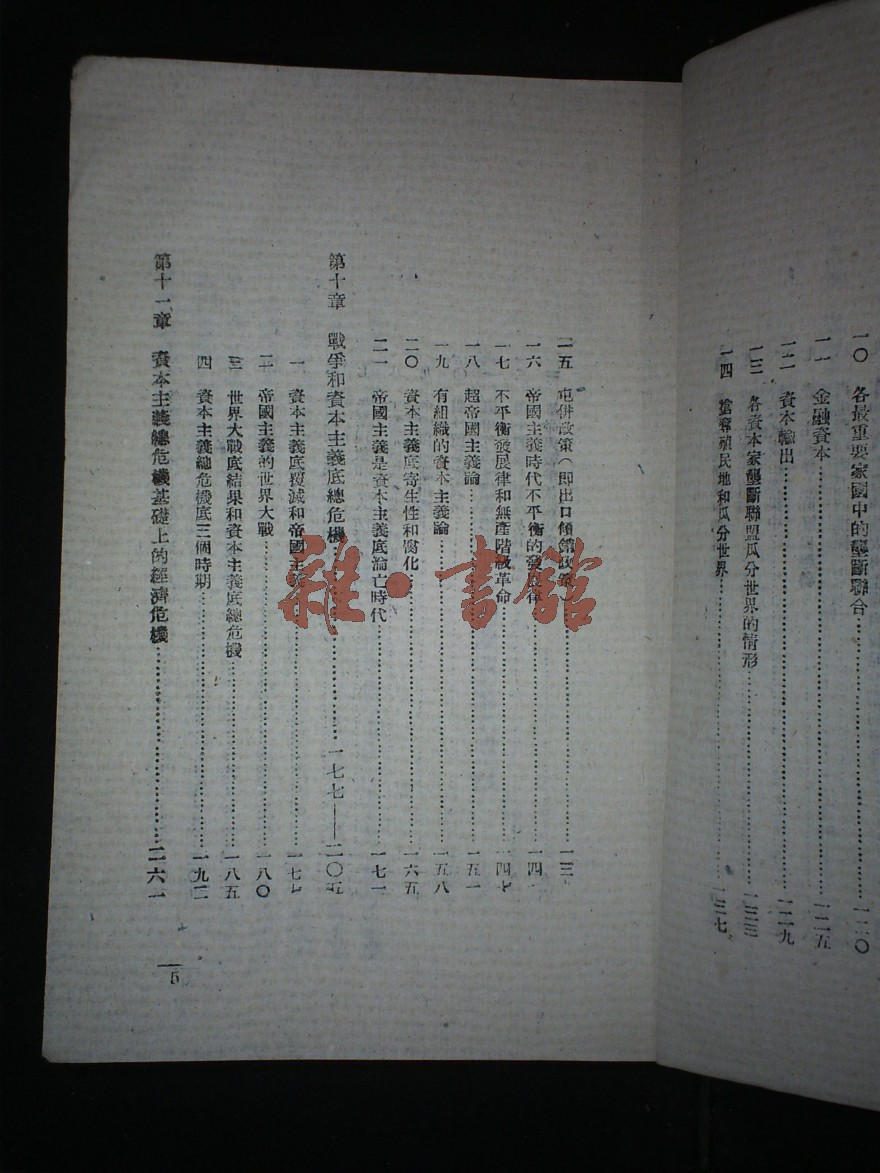 一〇 各最重要家國中的壟斷聯合……一二〇
一一 金融資本……一二五
一二 資本輸出……一二九
一三 各資本家壟斷聯盟瓜分世界的情形……一三三
一四 搶奪殖民地和瓜分世界……一三七
一五 屯併政策（即出口傾銷政策）……一三
一六 帝國主義時代不平衡的發展律……一四
一七 不平衡發展律和無產階級革命……一四七
一八 超帝國主義論……一五一
一九 有組織的資本主義論……一五八
二〇 資本主義底寄生性和腐化……一六五
二一 帝國主義是資本主義底淪亡時代……一七一
第十章 戰爭和資本主義底總危機……一七七——二〇五
一 資本主義底覆滅和帝國主……一七七
二 帝國主義的世界大戰……一八〇
三 世界大戰底結果和資本主義底總危機……一八五
四 資本主義總危機底三個時期……一九二
第十一章 資本主義總危機基礎上的經濟危機……二六一
5
雜·書館